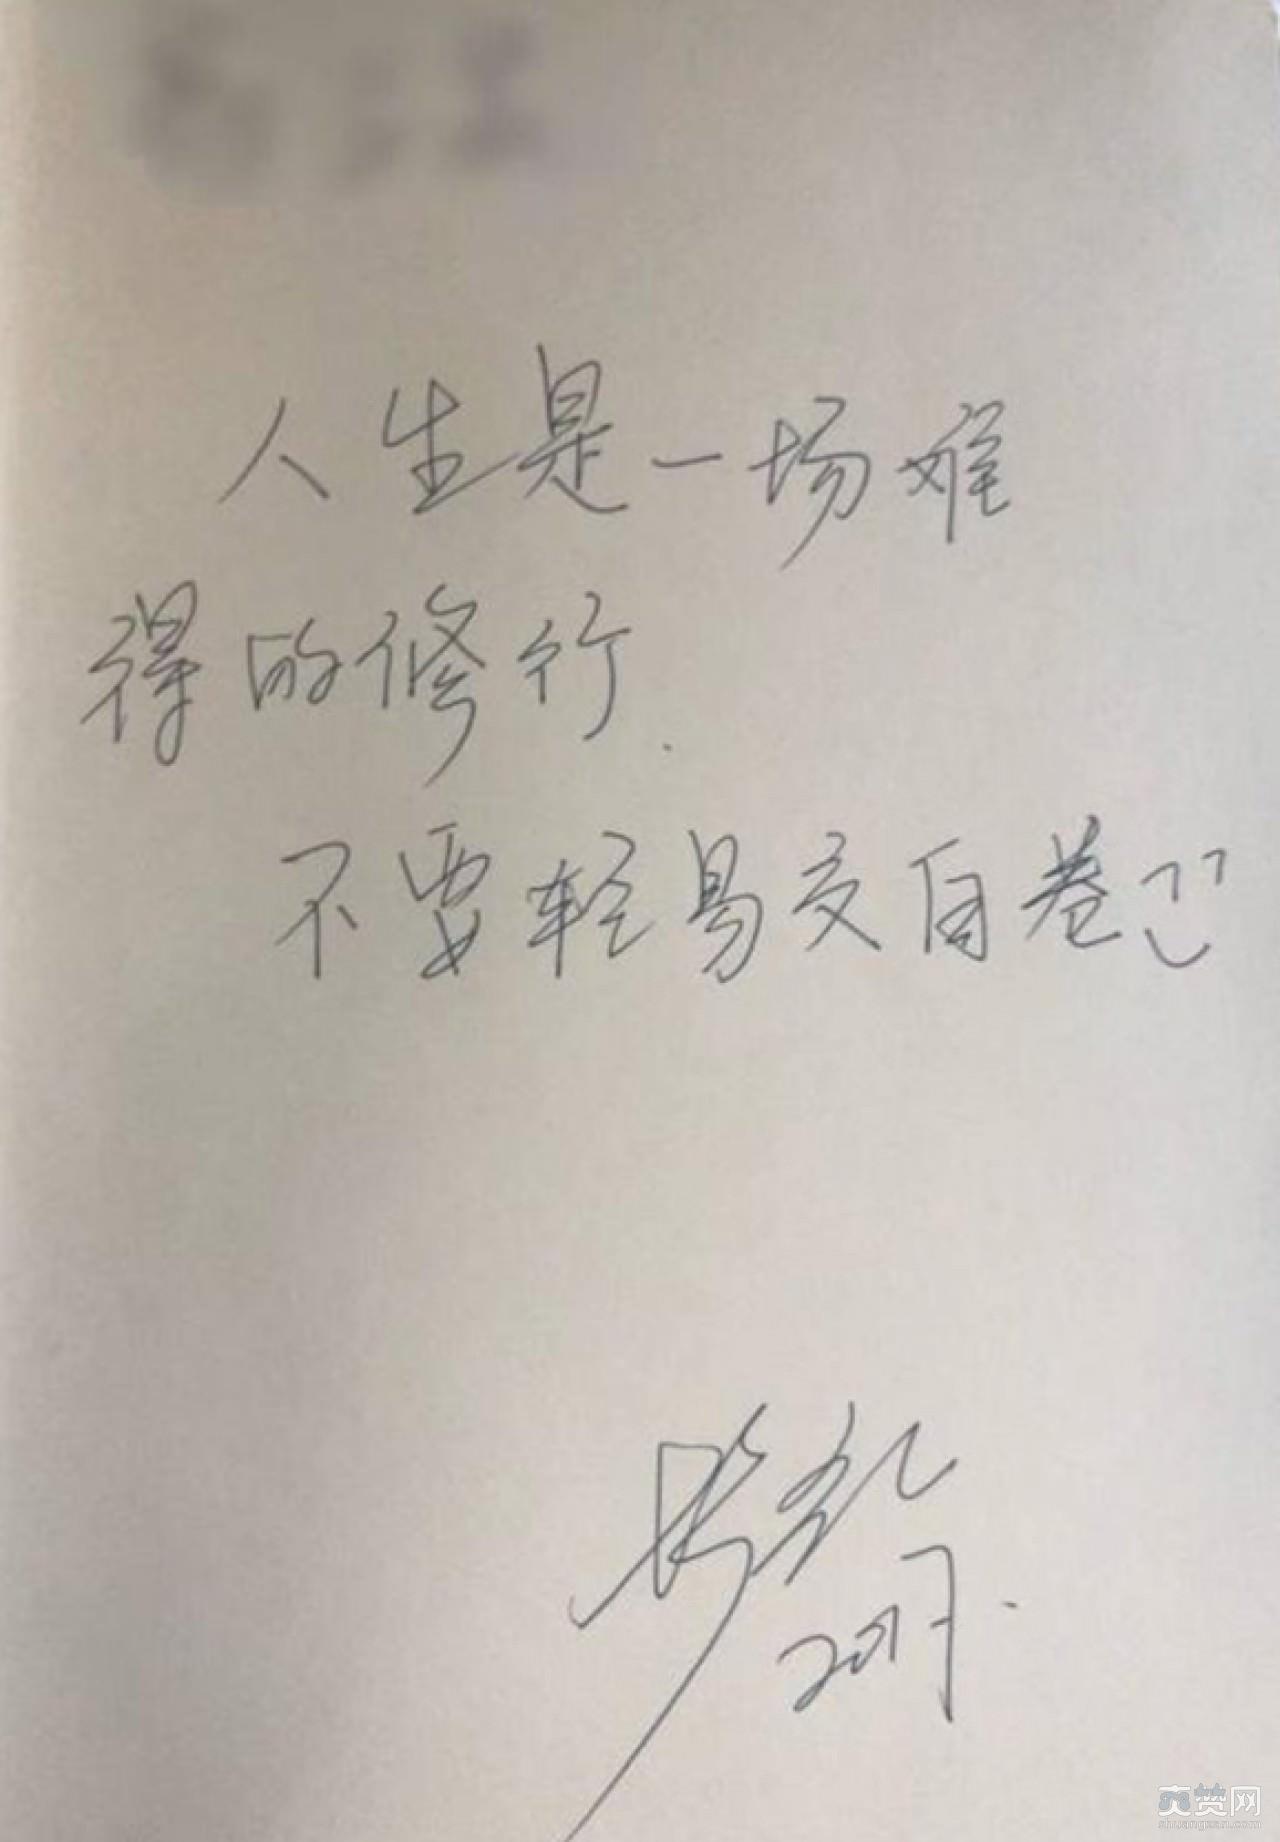 人生是一场难
得的修行.
不要轻易交白卷
2017.
爽赞网
shuangzan.com